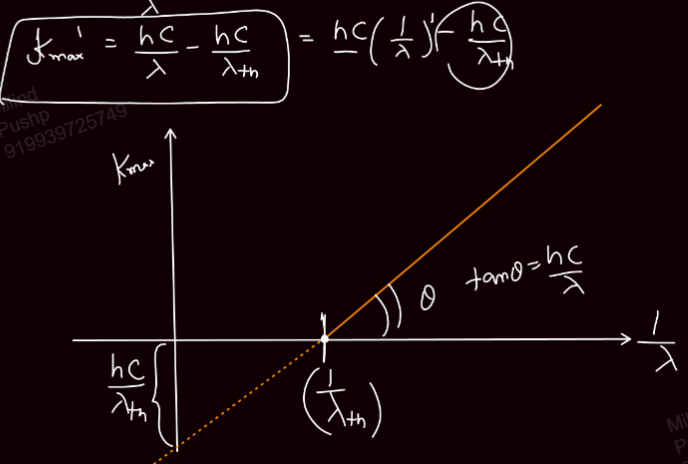 λ
K_max' = hc/λ - hc/λth = hc(1/λ)' - hc/λth
Pushp
919939725749
K_max
θ tanθ = hc/λ
1/λ
hc/λth
(1/λth)